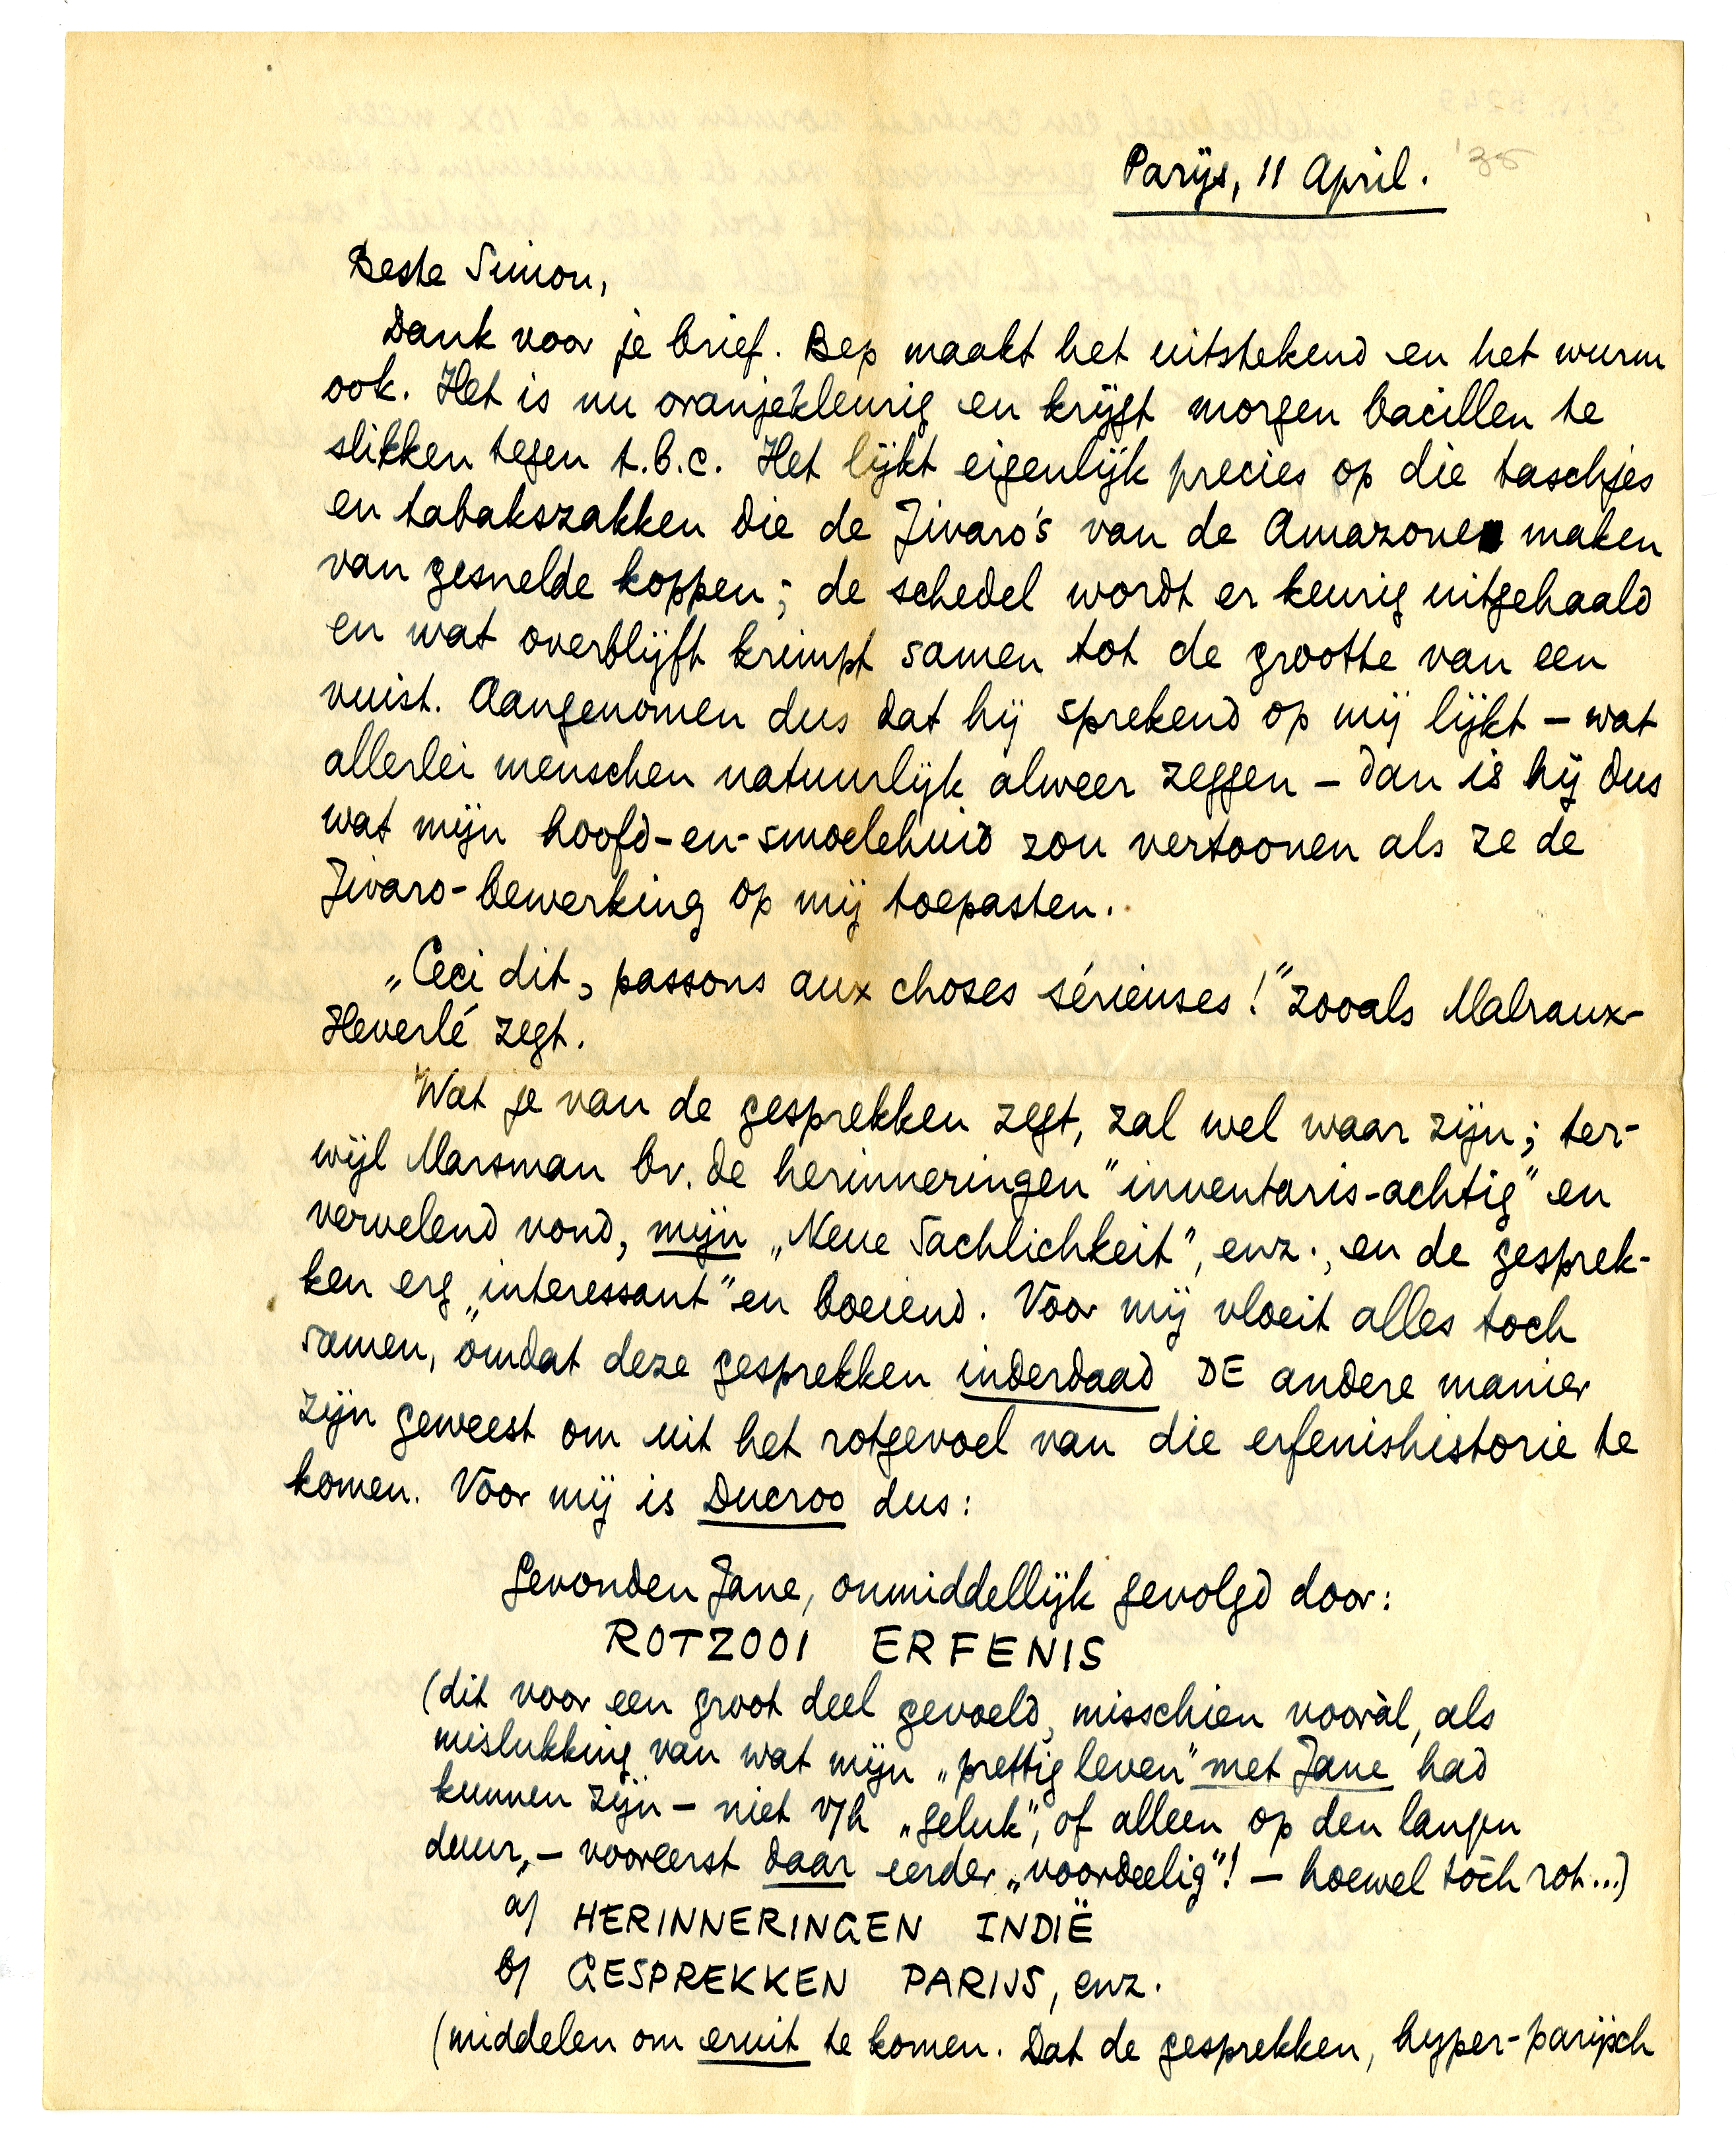 Parijs, 11 April. '35
Beste Simon,
Dank voor je brief. Bep maakt het uitstekend en het wurm
ook. Het is nu oranjekleurig en krijgt morgen bacillen te
slikken tegen t.b.c. Het lijkt eigenlijk precies op die taschjes
en tabakszakken die de Jivaro's van de Amazone maken
van gesnelde koppen; de schedel wordt er keurig uitgehaald
en wat overblijft krimpt samen tot de grootte van een
vuist. Aangenomen dus dat hij sprekend op mij lijkt – wat
allerlei menschen natuurlijk alweer zeggen – dan is hij dus
wat mijn hoofd-en-smoelehuid zou vertoonen als ze de
Jivaro-bewerking op mij toepasten.
„Ceci dit, passons aux choses sérieuses!" zooals Malraux-
Heverlé zegt.
Wat je van de gesprekken zegt, zal wel waar zijn; ter-
wijl Marsman bv. de herinneringen "inventaris-achtig" en
vervelend vond, mijn „Neue Sachlichkeit", enz., en de gesprek-
ken erg „interessant" en boeiend. Voor mij vloeit alles toch
samen, omdat deze gesprekken inderdaad DE andere manier
zijn geweest om uit het rotgevoel van die erfenishistorie te
komen. Voor mij is Ducroo dus:
Gevonden Jane, onmiddellijk gevolgd door:
ROTZOOI ERFENIS
(dit voor een groot deel gevoeld, misschien vooràl, als
mislukking van wat mijn „prettig leven" met Jane had
kunnen zijn – niet v/h „geluk", of alleen op den langen
duur, – vooreerst daar eerder „voordeelig"! – hoewel tòch rot...)
a/ HERINNERINGEN INDIË
b/ GESPREKKEN PARIJS, enz.
(middelen om eruit te komen. Dat de gesprekken, hyper-parijsch